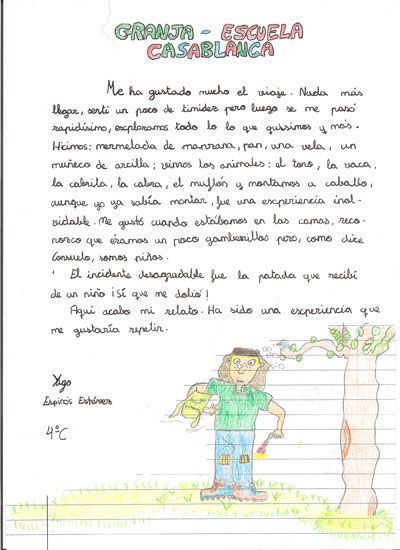 GRANJA - ESCUELA
CASABLANCA
Me ha gustado mucho el viaje. Nada más
llegar, sentí un poco de timidez pero luego se me pasó
rapidísimo, exploramos todo lo lo que quisimos y más.
Hicimos: mermelada de manzana, pan, una vela, un
muñeco de arcilla; vimos los animales: el toro, la vaca,
la cabrita, la cabra, el muflón y montamos a caballo,
aunque yo ya sabía montar, fue una experiencia inol-
vidable. Me gustó cuando estábamos en las camas, reco-
nozco que éramos un poco gamberrillos pero, como dice
Consuelo, somos niños.
El incidente desagradable fue la patada que recibí
de un niño ¡Sí que me dolió!
Aquí acabo mi relato. Ha sido una experiencia que
me gustaría repetir.
Yago
Espinós Estévez
4ºC